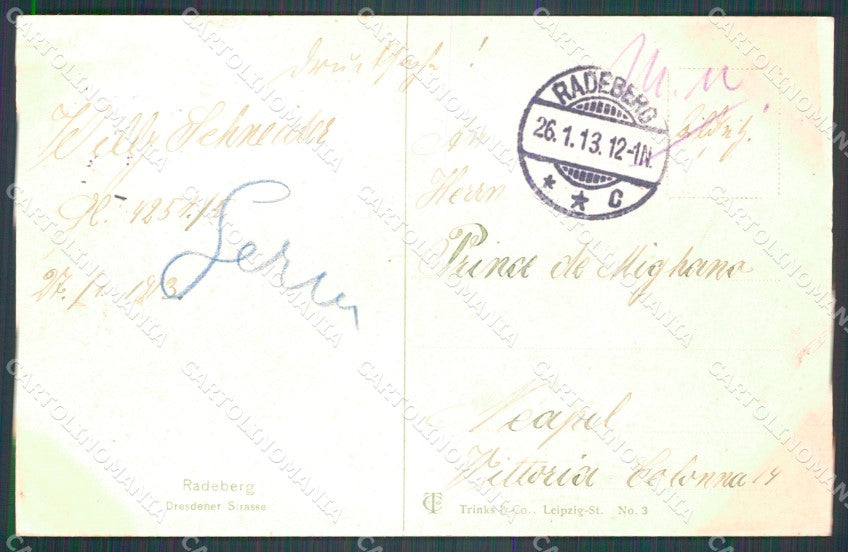 Drucksache!
Willy Schneider
27.
Germ
RADEBERG
26.1.13.12-1N.
* * C
An
Herrn
Prince de Mighano
Neapel
Vittoria Colonna 14
Radeberg
Dresdener Strasse
TC Trinks & Co., Leipzig-St. No. 3
CARTOLINOMANIA